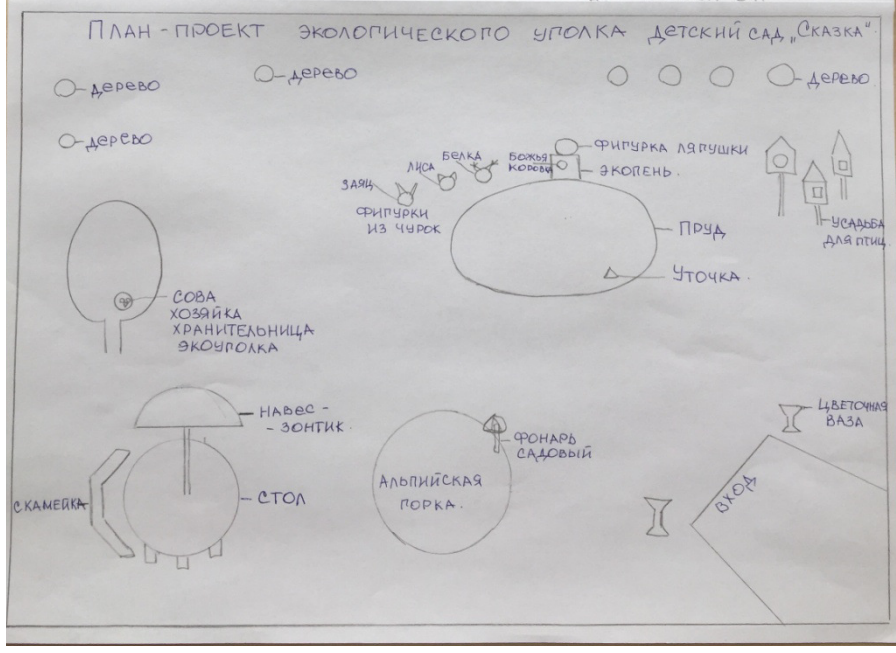 ПЛАН-ПРОЕКТ ЭКОЛОГИЧЕСКОГО УГОЛКА ДЕТСКИЙ САД „СКАЗКА"
ДЕРЕВО
ДЕРЕВО
ДЕРЕВО
ДЕРЕВО
ЗАЯЦ
ЛИСА
БЕЛКА
ФИГУРКИ
ИЗ ЧУРОК
БОЖЬЯ
КОРОВКА
ФИГУРКА ЛЯГУШКИ
ЭКОПЕНЬ.
ПРУД
УТОЧКА.
УСАДЬБА
ДЛЯ ПТИЦ
СОВА
ХОЗЯЙКА
ХРАНИТЕЛЬНИЦА
ЭКОУГОЛКА
НАВЕС-
-ЗОНТИК.
СКАМЕЙКА
СТОЛ
АЛЬПИЙСКАЯ
ГОРКА.
ФОНАРЬ
САДОВЫЙ
ЦВЕТОЧНАЯ
ВАЗА
ВХОД